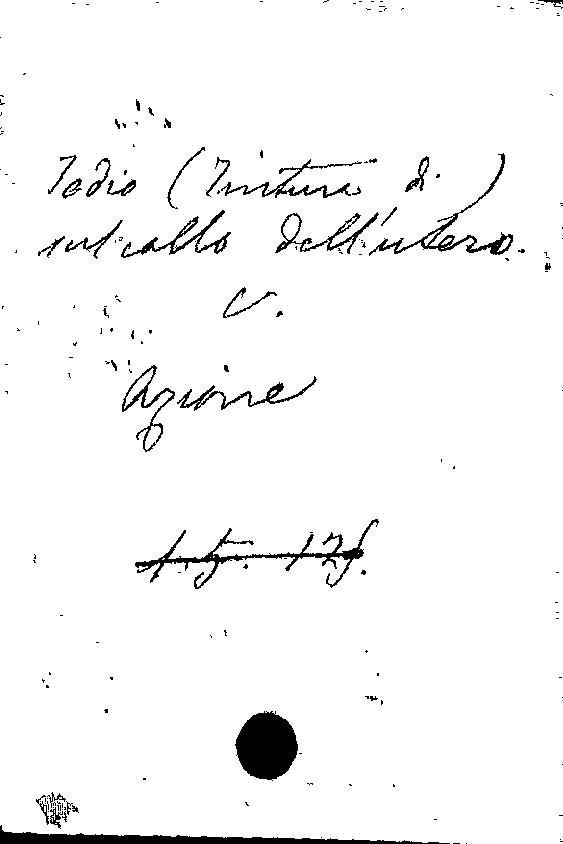 Iodio (Tintura di)
sul collo dell'utero.
V.
Azione